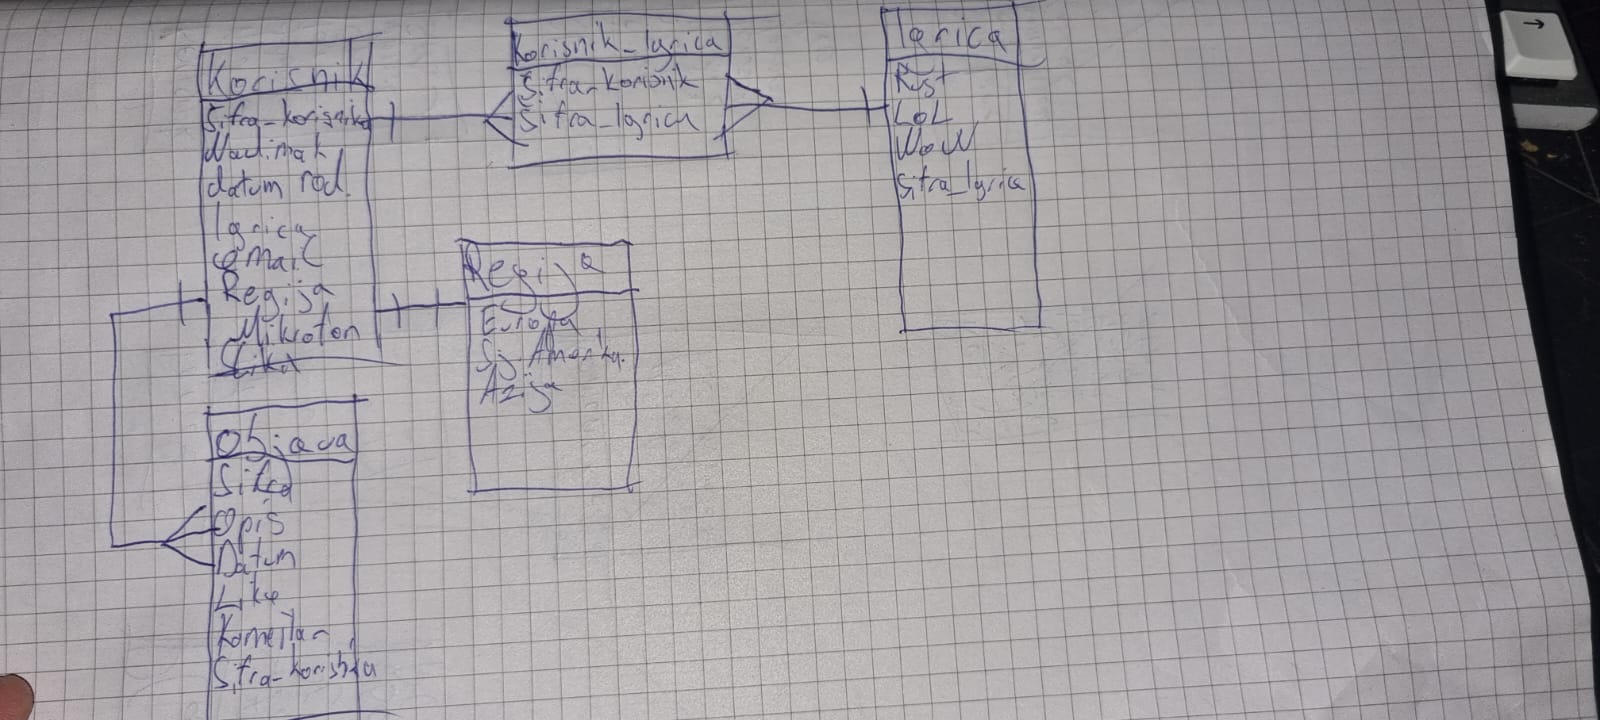 Korisnik
Šifra_korisnika
Nadimak
datum rod.
Igrica
email
Regija
Mikrofon
Slika
Korisnik_Igrica
Šifra_korisnik
Šifra_Igrica
Igrica
Rust
LoL
WoW
Šifra_Igrica
Regija
Europa
Sj. Amerika
Azija
Objava
Opis
Datum
Like
Komentar
Šifra_korisnika
→